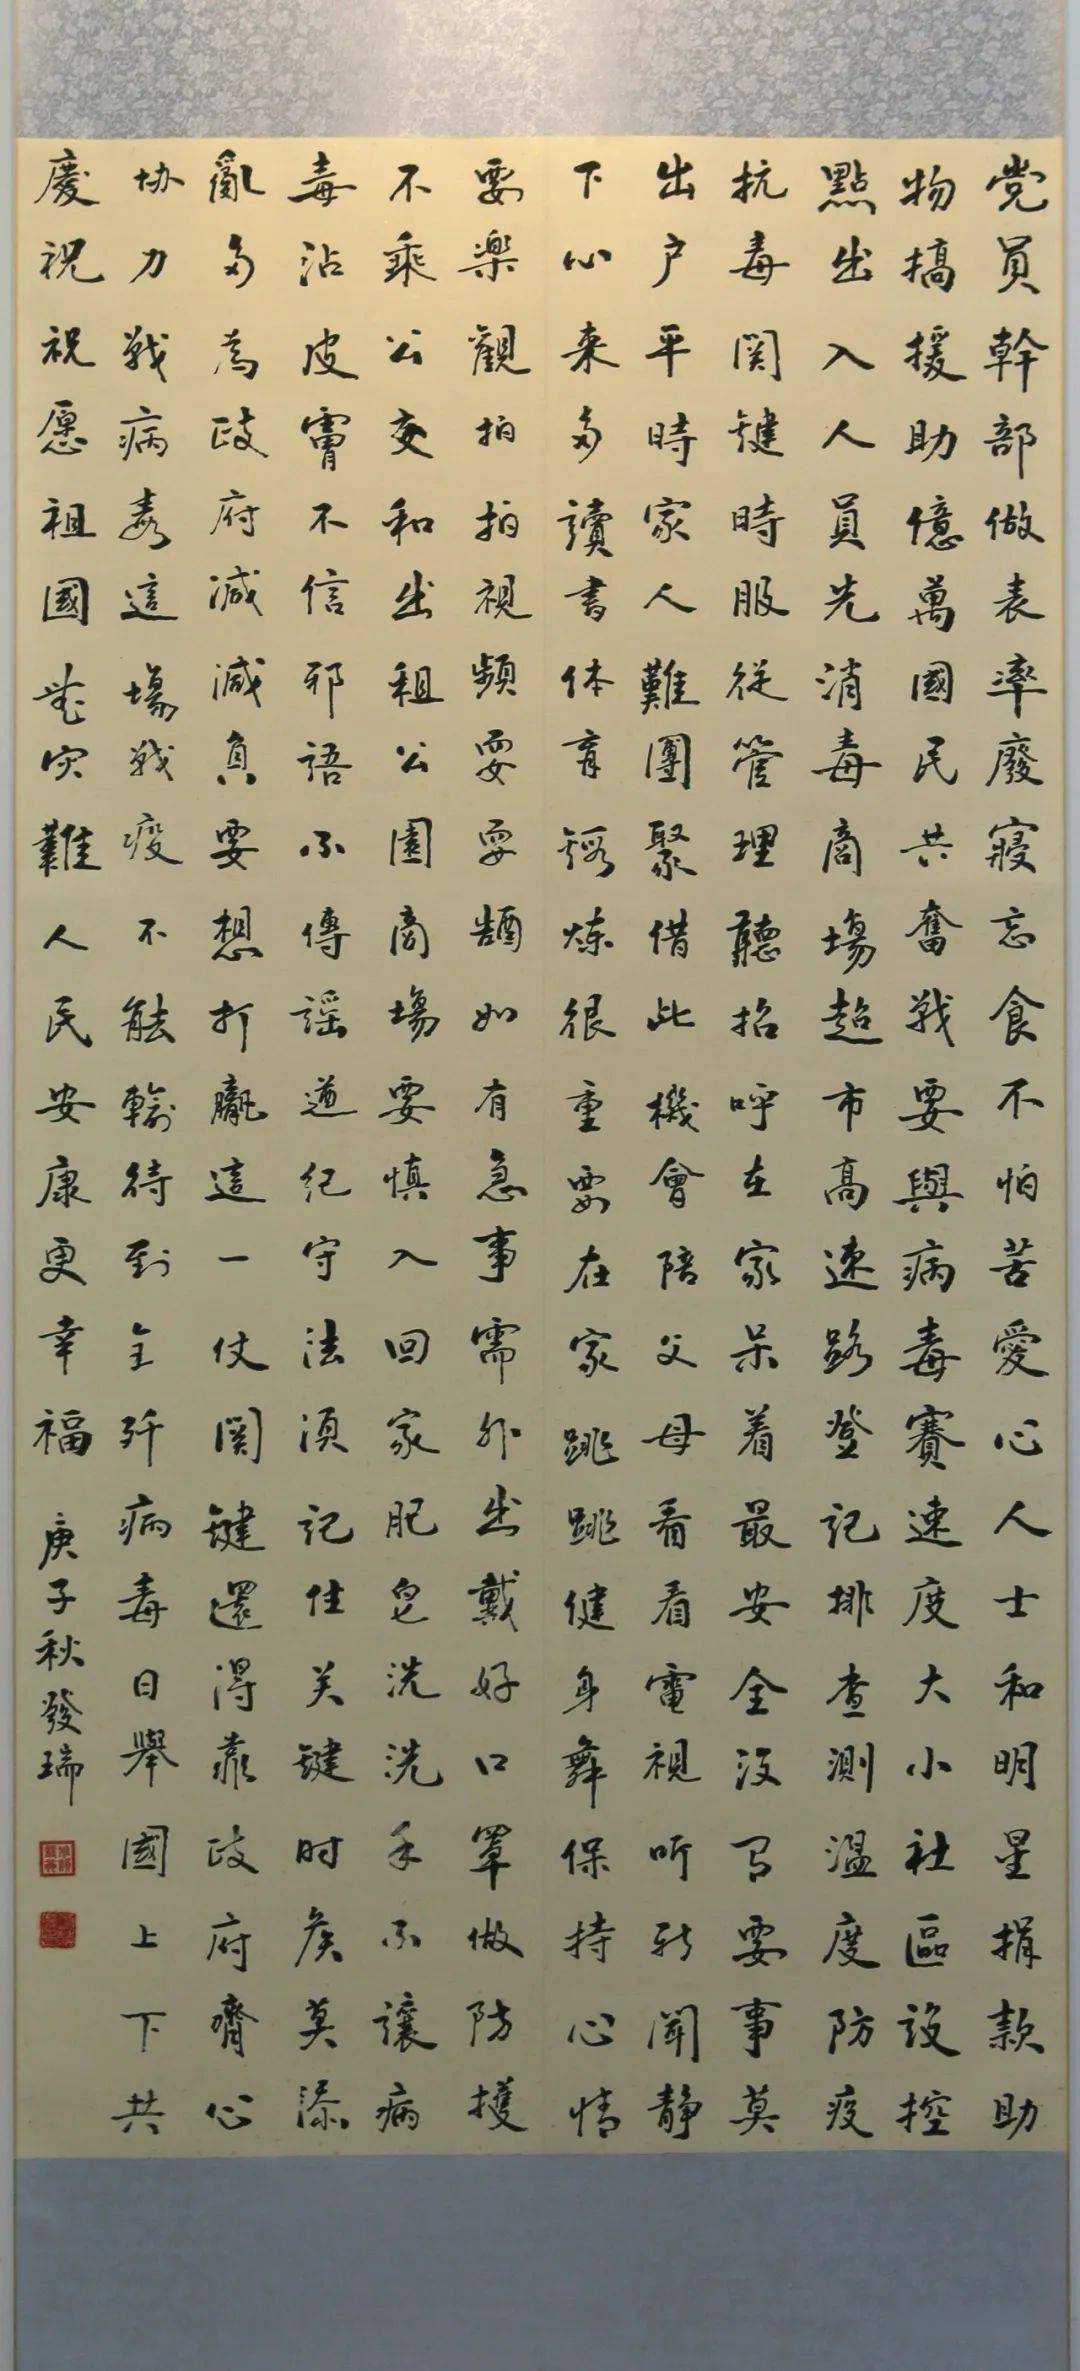 党員幹部做表率廢寢忘食不怕苦愛心人士和明星捐款助
物搞援助億萬國民共奮戰要與病毒賽速度大小社區設控
點出入人員先消毒商場超市高速路登記排查測溫度防疫
抗毒関键時服従管理聽招呼在家呆着最安全没有要事莫
出户平時家人難團聚借此機會陪父母看看電視听新聞静
下心来多讀書体育锻炼很重要在家跳跳健身舞保持心情
要楽觀拍拍視頻要要酷如有急事需外出戴好口罩做防護
不乘公交和出租公園商場要慎入回家肥皂洗洗手不讓病
毒沾皮膚不信邪語不傳謡遵纪守法須記住关键时候莫添
亂多為政府减减負要想打贏這一仗関键還得靠政府齊心
协力戰病毒這場戰疫不能輸待到全歼病毒日舉國上下共
慶祝祝愿祖國無灾難人民安康更幸福 庚子秋發瑞